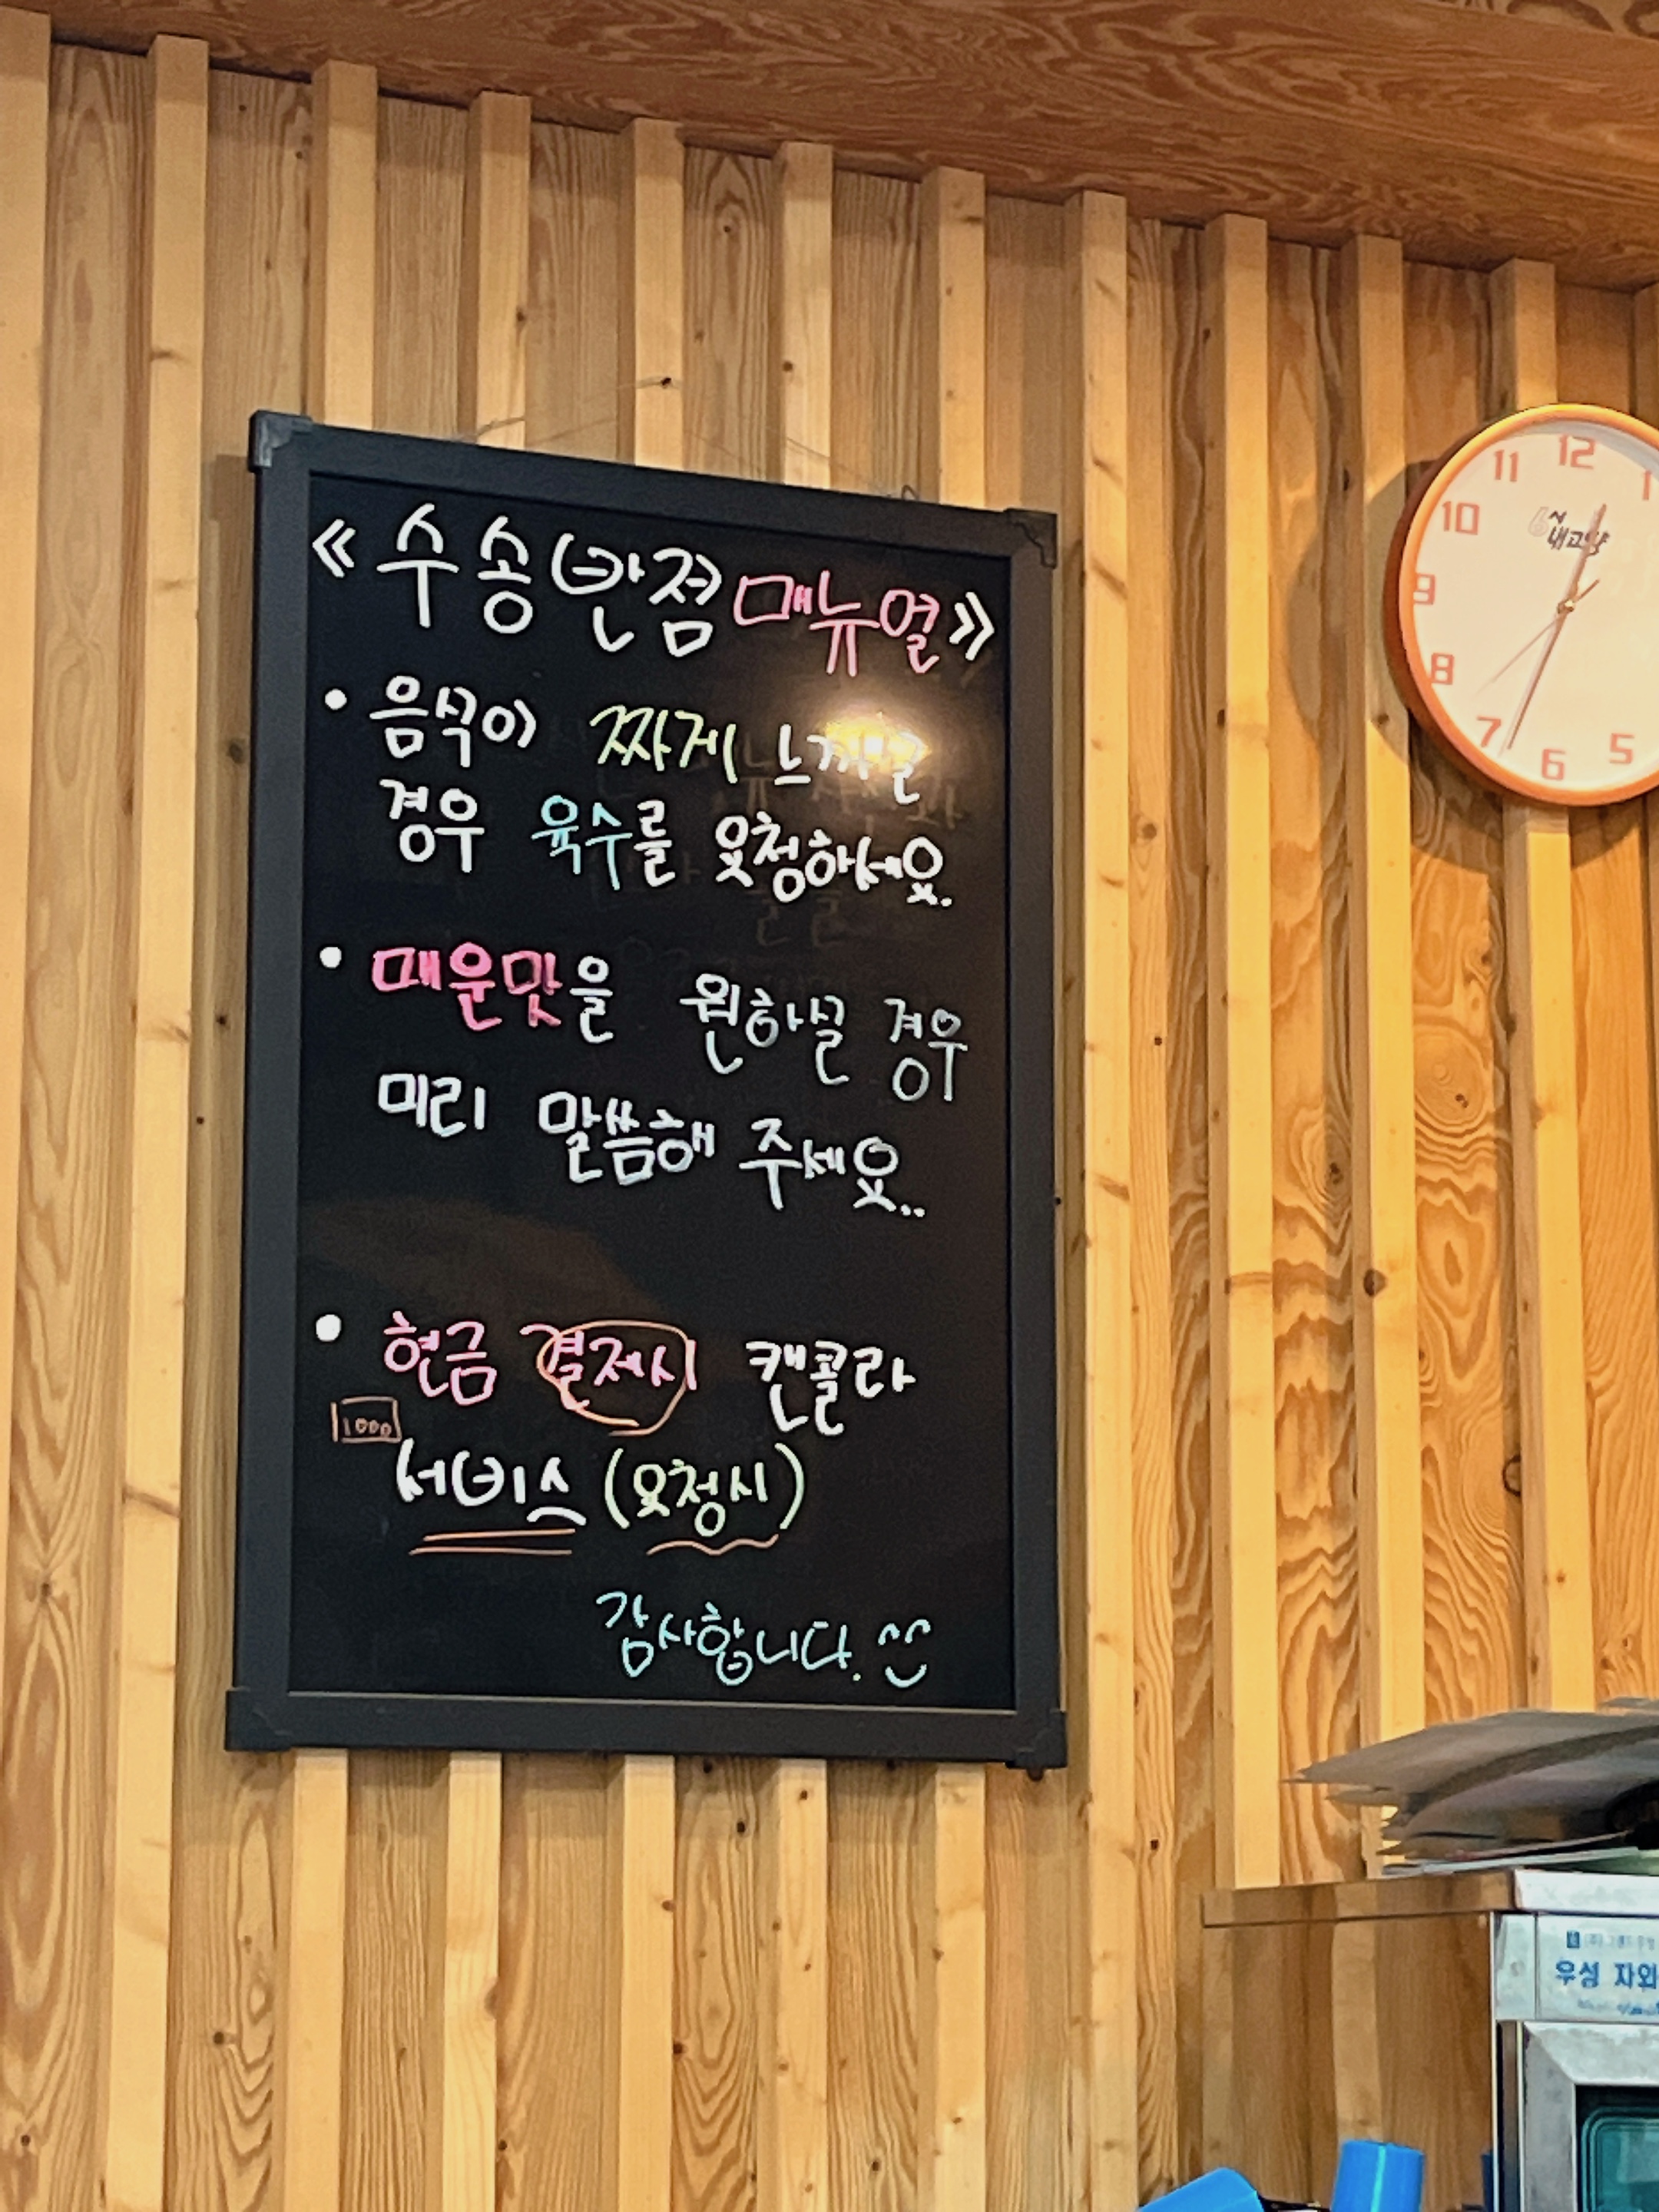 《수송반점 메뉴얼》
• 음식이 짜게 느껴질
경우 육수를 요청하세요.
• 매운맛을 원하실 경우
미리 말씀해 주세요..
• 현금 결제시 캔콜라
1000
서비스 (요청시)
감사합니다. ^^
11 12 1
10
9
8
7 6 5
내고향
우성 자외